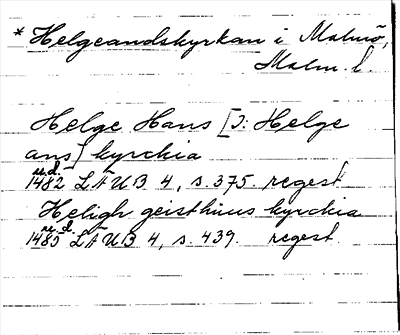 * Helgeandskyrkan i Malmö,
Malm. l.
Helge Hans [ɔ: Helge
ans] kyrckia
u.d.
1482 LÄUB 4, s. 375. regest
Heligh geisthuus kyrckia
u.d.
1485 LÄUB 4, s. 439. regest